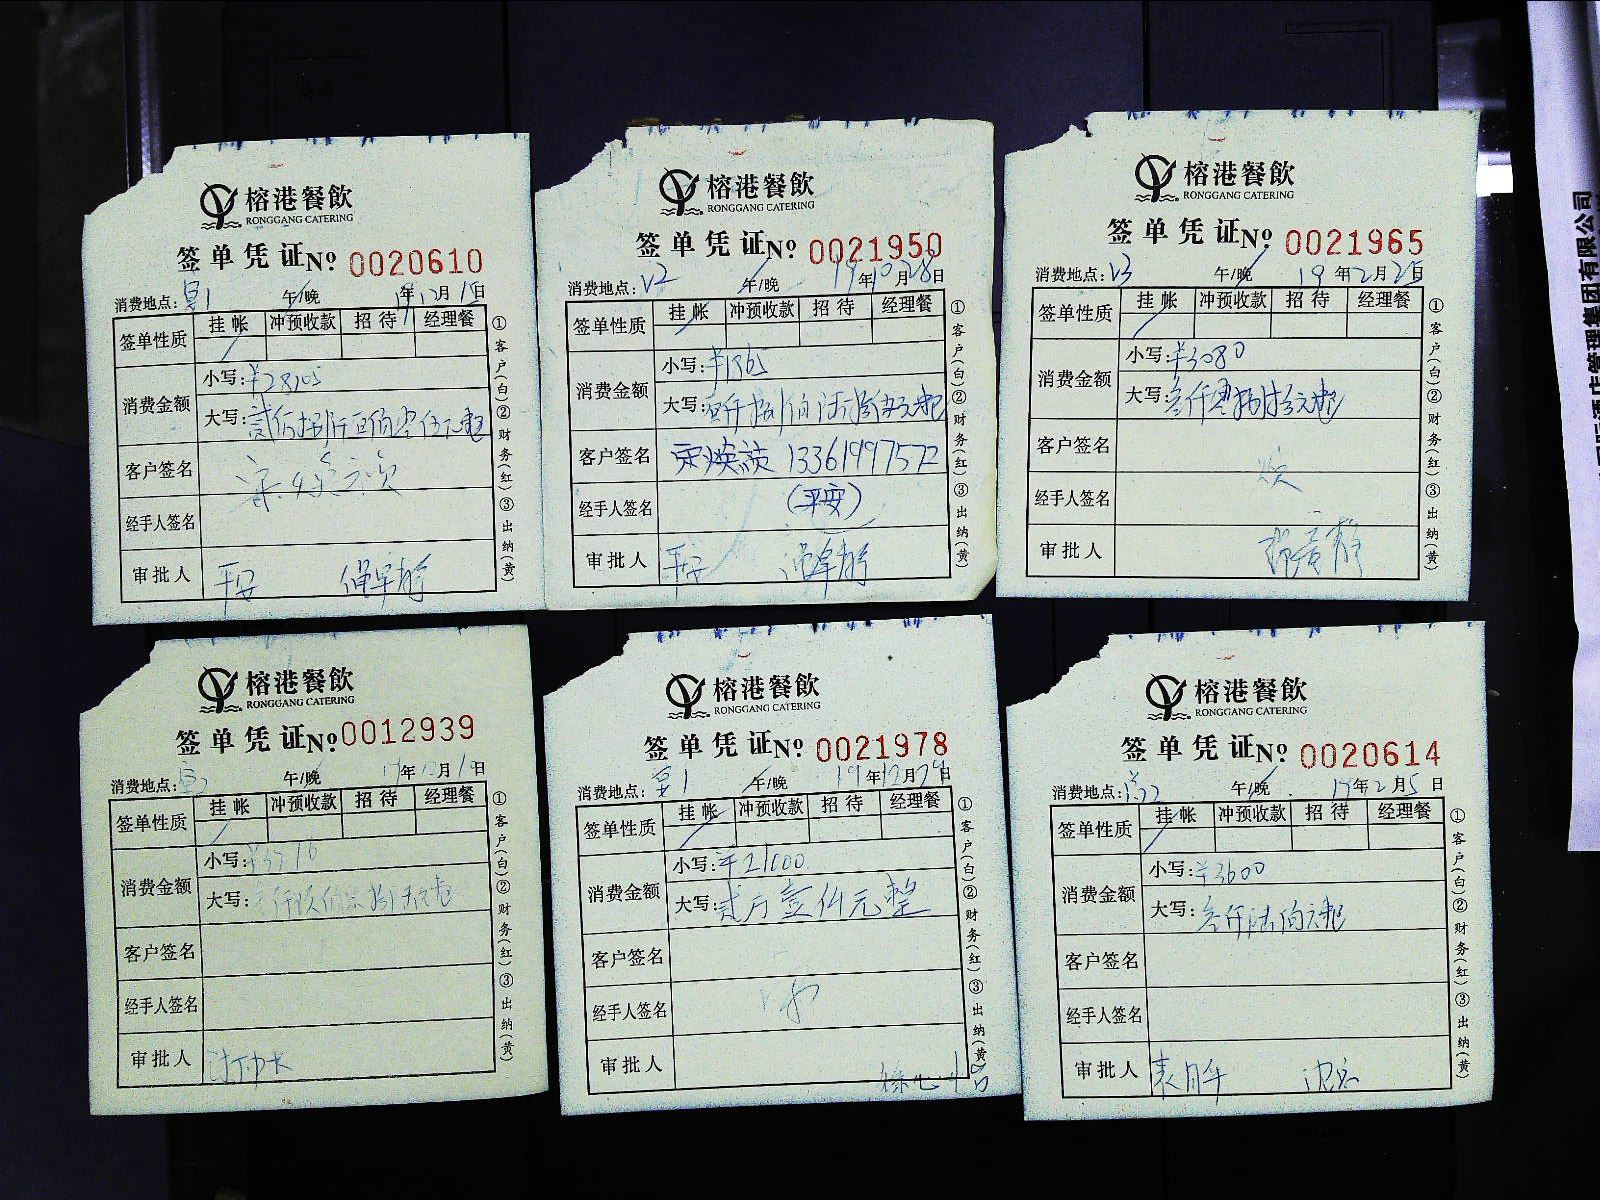 榕港餐飲
RONGGANG CATERING
签单凭证No. 0020610
消费地点: 午/晚 年12月1 日
签单性质 挂帐 冲预收款 招待 经理餐
消费金额 小写:¥28105
大写:贰万捌仟壹佰零伍元整
客户签名
经手人签名
审批人 平安
①客户(白)②财务(红)③出纳(黄)
榕港餐飲
RONGGANG CATERING
签单凭证No. 0021950
消费地点:V2 午/晚 19年10月28日
签单性质 挂帐 冲预收款 招待 经理餐
消费金额 小写:¥1865
大写:壹仟捌佰陆拾伍元整
客户签名 13361997572
经手人签名 (平安)
审批人 平安
①客户(白)②财务(红)③出纳(黄)
榕港餐飲
RONGGANG CATERING
签单凭证No. 0021965
消费地点:V3 午/晚 19年12月25日
签单性质 挂帐 冲预收款 招待 经理餐
消费金额 小写:¥3080
大写:叁仟零捌拾元整
客户签名
经手人签名
审批人
①客户(白)②财务(红)③出纳(黄)
榕港餐飲
RONGGANG CATERING
签单凭证No. 0012939
消费地点: 午/晚 年 月 日
签单性质 挂帐 冲预收款 招待 经理餐
消费金额 小写:¥3576
大写:叁仟伍佰柒拾陆元整
客户签名
经手人签名
审批人
①客户(白)②财务(红)③出纳(黄)
榕港餐飲
RONGGANG CATERING
签单凭证No. 0021978
消费地点: 午/晚 19年12月24日
签单性质 挂帐 冲预收款 招待 经理餐
消费金额 小写:¥21000
大写:贰万壹仟元整
客户签名
经手人签名
审批人
①客户(白)②财务(红)③出纳(黄)
榕港餐飲
RONGGANG CATERING
签单凭证No. 0020614
消费地点: 午/晚 年2月5日
签单性质 挂帐 冲预收款 招待 经理餐
消费金额 小写:¥3600
大写:叁仟陆佰元整
客户签名
经手人签名
审批人 袁月华
①客户(白)②财务(红)③出纳(黄)
酒店管理集团有限公司